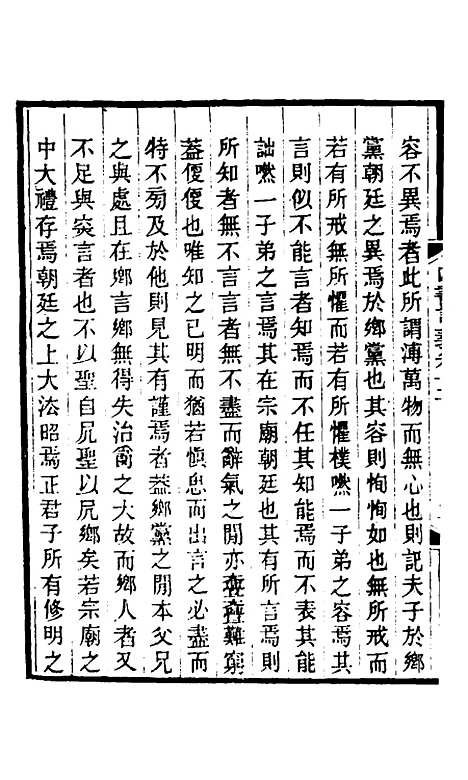 容不異焉者此所謂溥萬物而無心也則記夫子於鄉
黨朝廷之異焉於鄉黨也其容則恂恂如也無所戒而
若有所戒無所懼而若有所懼樸噩一子弟之容焉其
言則似不能言者知焉而不任其知能焉而不表其能
訥噩一子弟之言焉其在宗廟朝廷也其有所言焉則
所知者無不言言者無不盡而辭氣之閒亦亹亹難窮
葢便便也唯知之已明而猶若慎思而出言之必盡而
特不旁及於他則見其有謹焉者葢鄉黨之閒本父兄
之與處且在鄉言鄉無得失治亂之大故而鄉人者又
不足與深言者也不以聖自尻聖以尻鄉矣若宗廟之
中大禮存焉朝廷之上大法昭焉正君子所有修明之